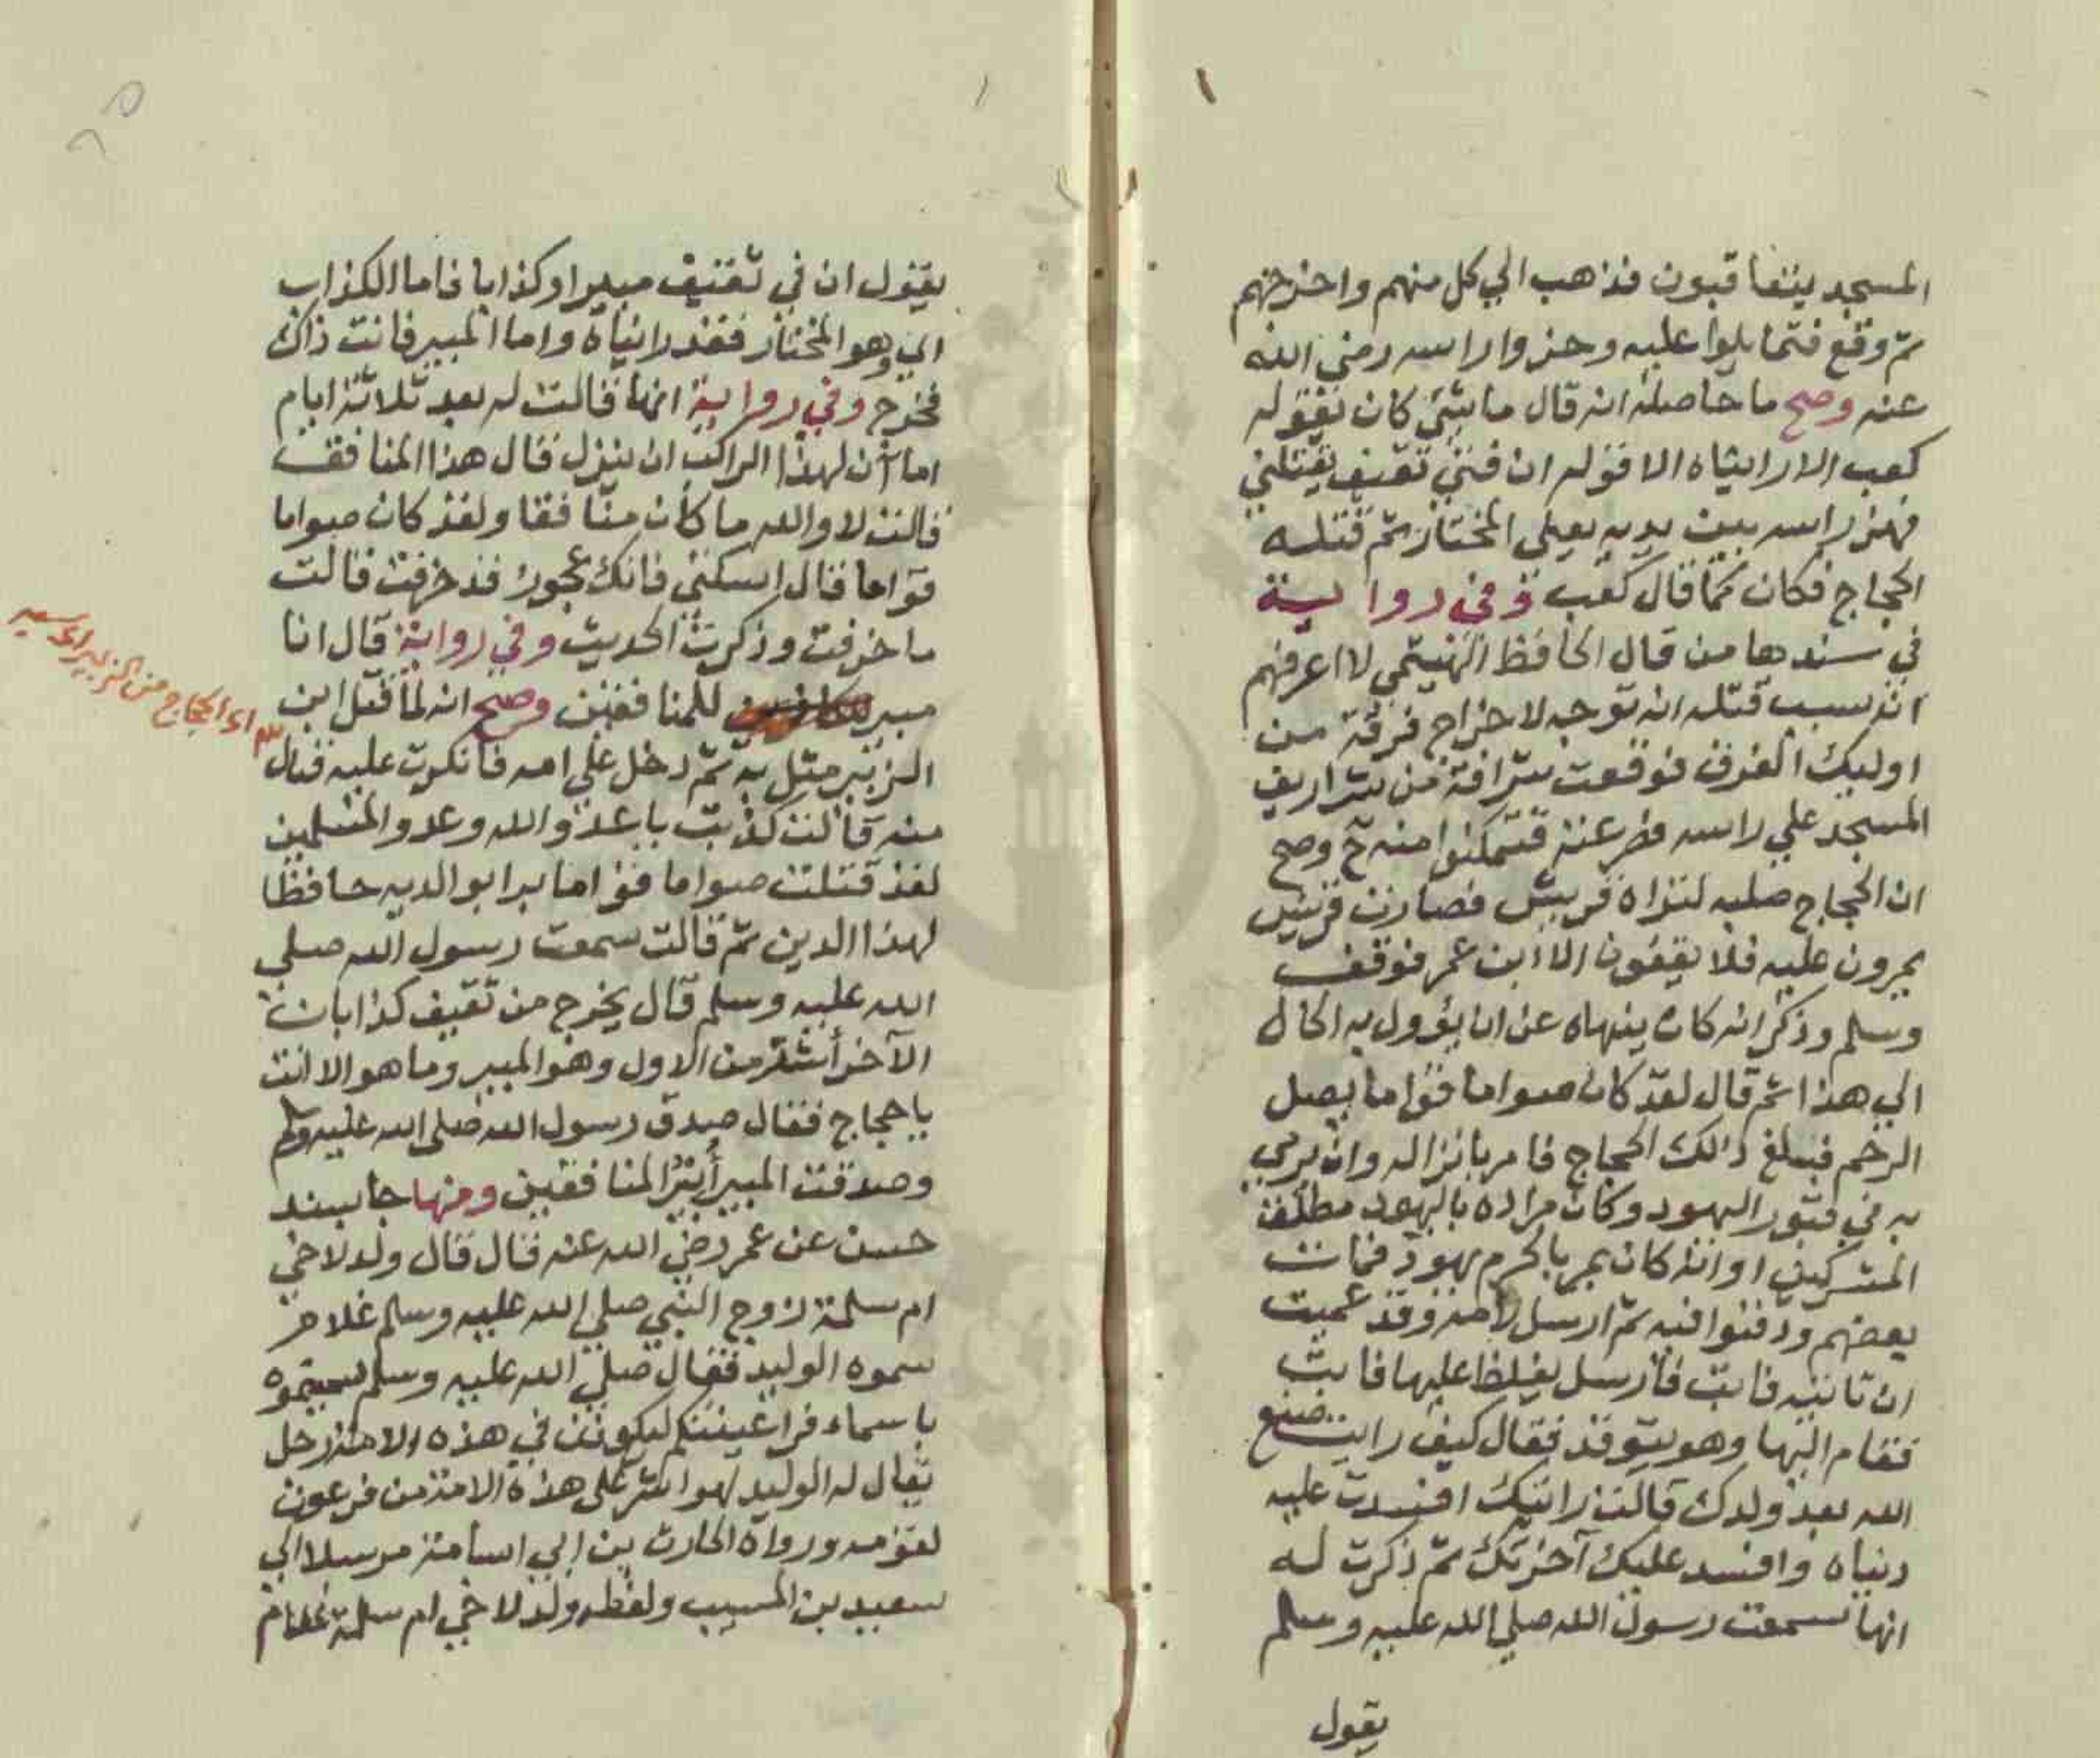 المسجد يتعاقبون فذهب الي كل منهم واخرجهم
ثم وقع فتمايلوا عليه وحزوا راسه رضي الله
عنه وصح ما حاصله انه قال ما شئ كان يقوله
كعب الا رايناه الا قوله ان فتى ثقيف يقتلني
فهذ راسه بين يديه يعني المختار ثم قتله
الحجاج فكان كما قال كعب وفي رواية
في سندها من قال الحافظ الهيتمي لا اعرفهم
ان سبب قتله انه توجه لاخراج فرقة من
اوليك الفرق فوقعت شرافة من شراريف
المسجد علي راسه فخر عنه فتمكنوا منه ح وصح
ان الحجاج صلبه لتراه قريش فصارت قريش
يمرون عليه فلا يقفون الا ابن عمر فوقف
وسلم وذكر انه كان ينهاه عن ان يؤول به الحال
الي هذا ثم قال لقد كان صواما قواما يصل
الرحم فبلغ ذالك الحجاج فامر بانزاله وان يرمي
به في قبور اليهود وكان مراده باليهود مطلق
المشركين او انه كان يمر بالحرم يهود فمات
بعضهم ودفنوا فيه ثم ارسل لامه وقد عميت
ان تاتيه فابت فارسل يغلظ عليها فابت
فقام اليها وهو يتوقد فقال كيف رايت صنع
الله بعد ولدك قالت رايتك افسدت عليه
دنياه وافسد عليك آخرتك ثم ذكرت له
انها سمعت رسول الله صلي الله عليه وسلم
يقول
يقول ان في ثقيف مبيرا وكذابا فاما الكذاب
اي وهو المختار فقد رايناه واما المبير فانت ذاك
فخرج وفي رواية انها قالت له بعد ثلاثة ايام
اما آن لهذا الراكب ان ينزل قال هذا المنافق
قالت لا والله ما كان منافقا ولقد كان صواما
قواما فقال اسكتي فانك عجوز قد خرفت قالت
ما خرفت وذكرت الحديث وفي رواية قال انا
مبير للمنافقين وصح انه لما قتل ابن
الزبير مثل به ثم دخل علي امه فانكرت عليه فنال
منه قالت كذبت يا عدو الله وعدو المسلمين
لقد قتلت صواما قواما برا بوالديه حافظا
لهذا الدين ثم قالت سمعت رسول الله صلي
الله عليه وسلم قال يخرج من ثقيف كذابان
الآخر أشر من الاول وهو المبير وما هو الا انت
يا حجاج فقال صدق رسول الله صلي الله عليه وسلم
وصدقت المبير أبتر المنافقين ومنها جا بسند
حسن عن عمر رضي الله عنه قال قال ولد لاخي
ام سلمة زوج النبي صلي الله عليه وسلم غلام
سموه الوليد فقال صلي الله عليه وسلم سميتموه
باسماء فراعينكم ليكونن في هذه الامة رجل
يقال له الوليد لهو اشر علي هذه الامة من فرعون
لقومه ورواه الحارث بن ابي اسامة مرسلا الي
سعيد بن المسيب ولفظه ولد لاخي ام سلمة غلام